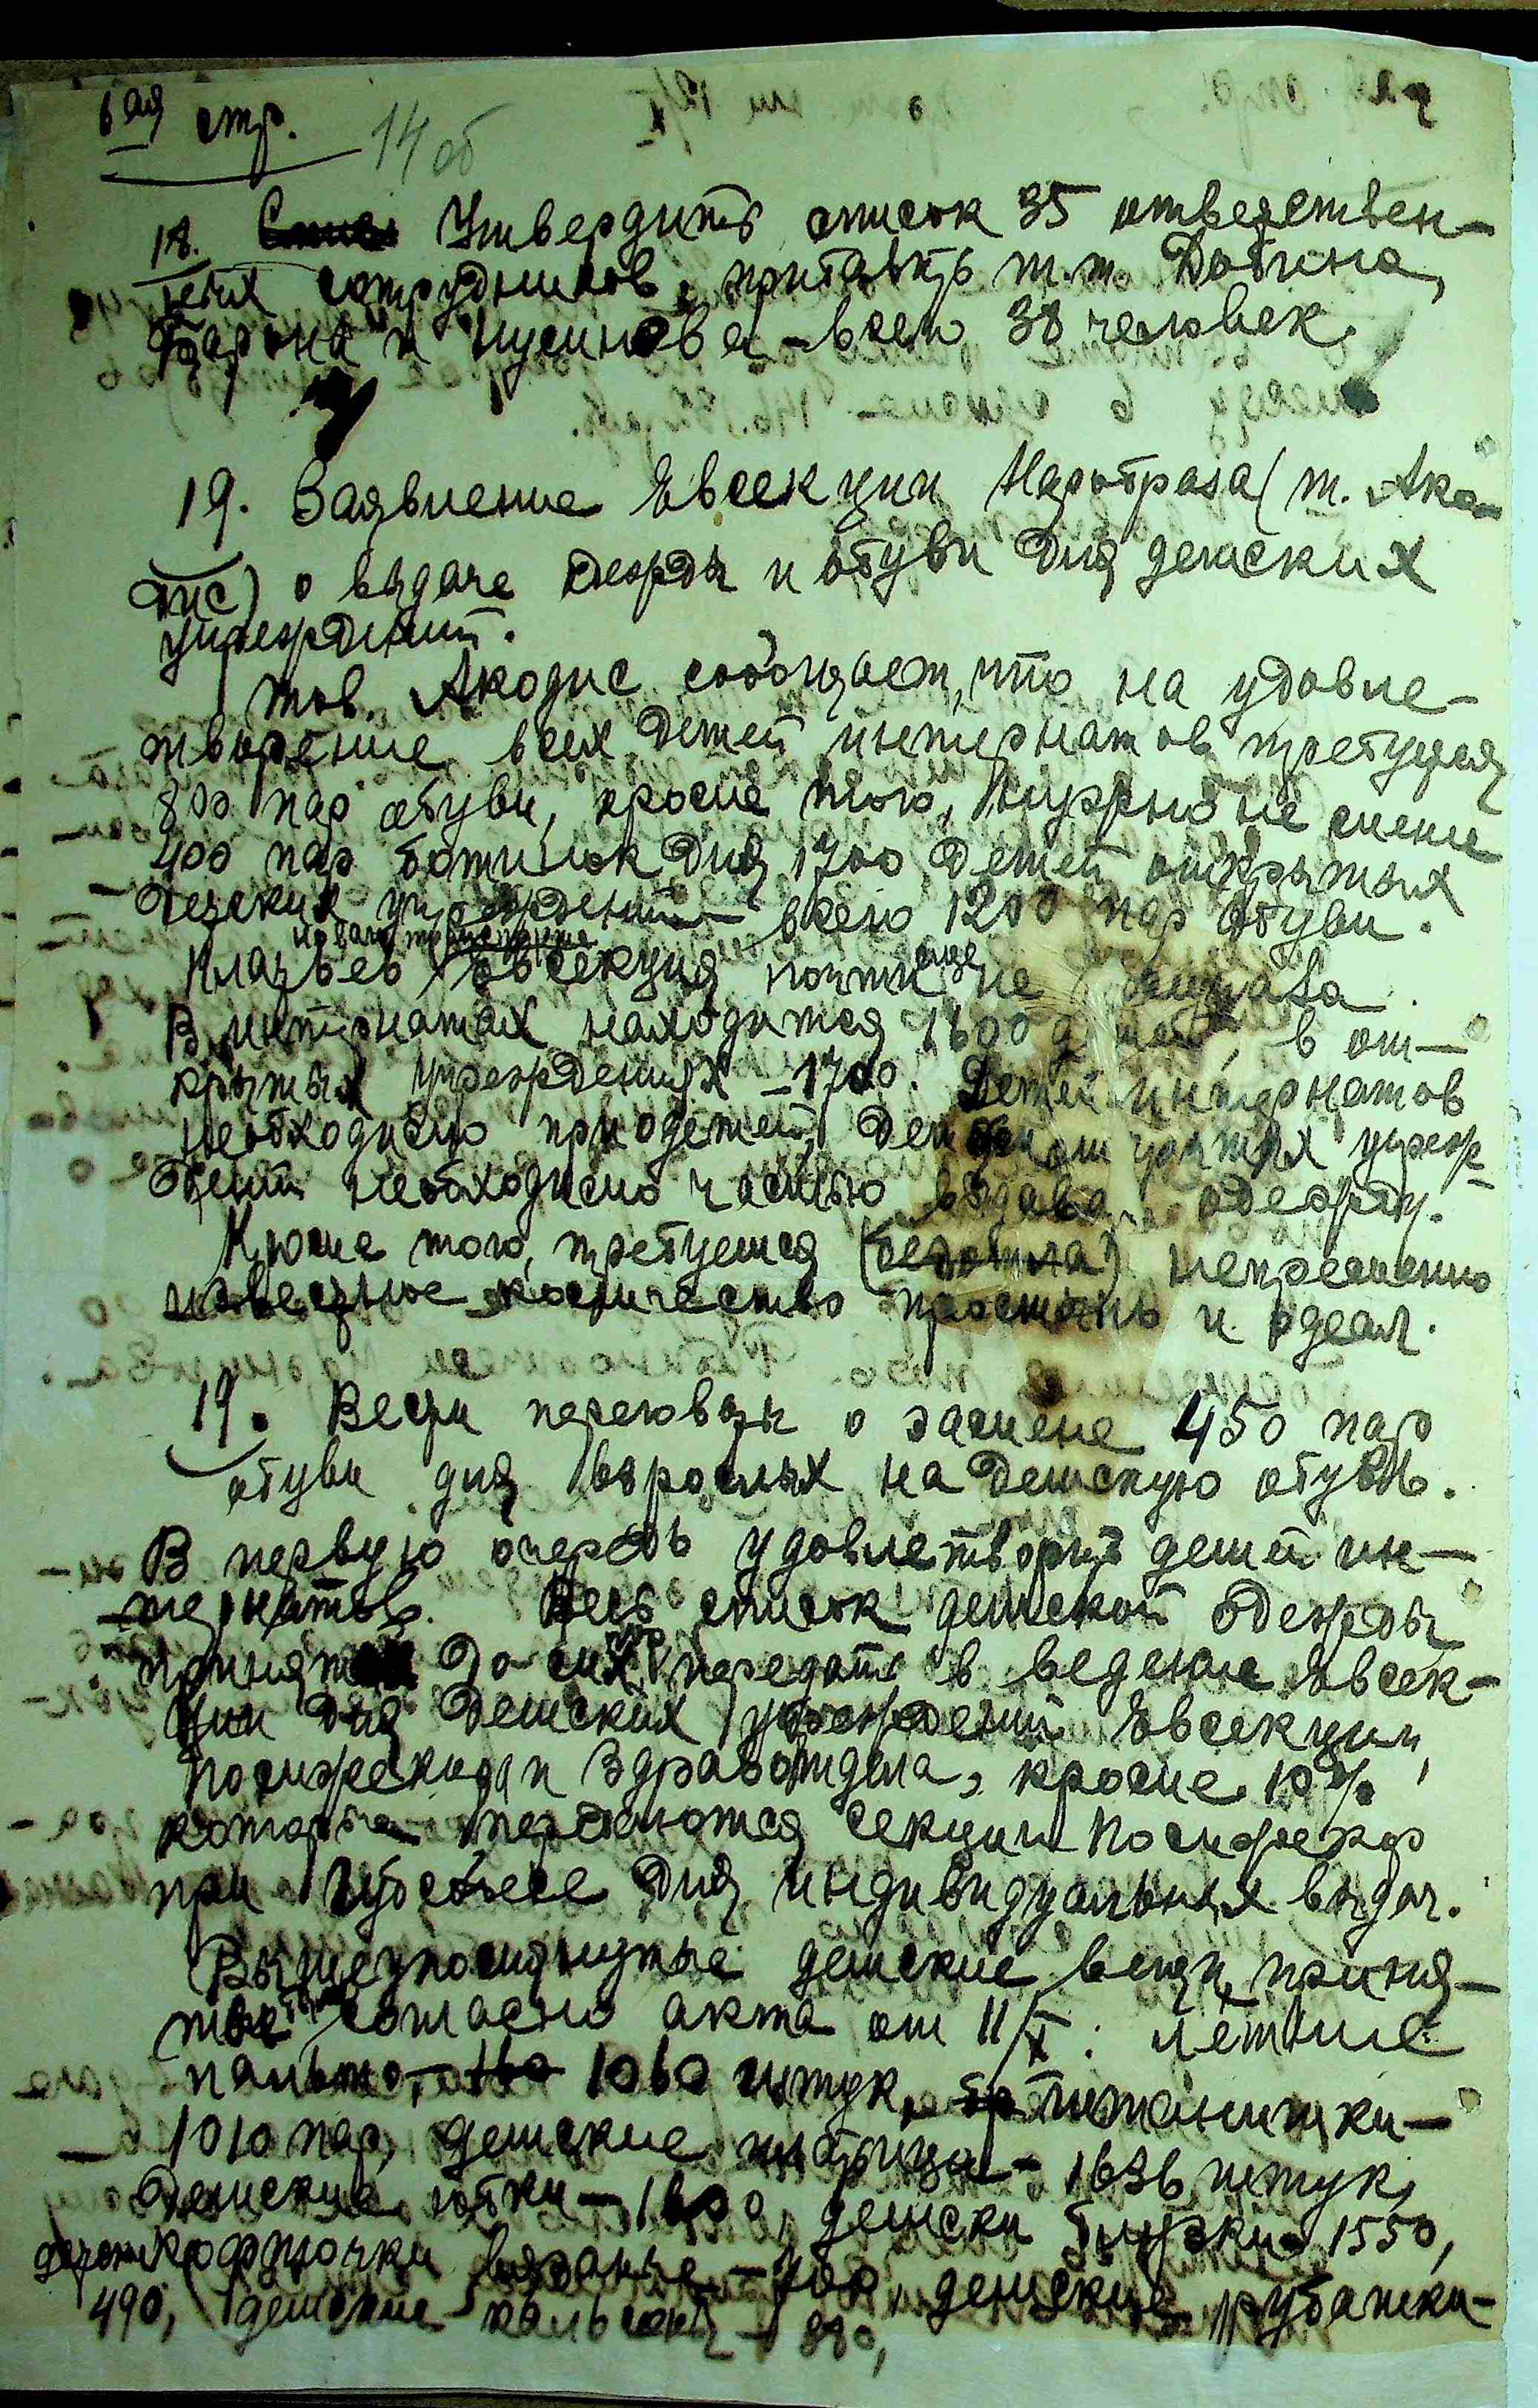 6ая стр. 14 об
18. Утвердить список 35 ответствен-
ных сотрудников, прибавить т.т. Добина,
Барона и Нусинова – всего 38 человек.
19. Заявление Евсекции Наробраза (т. Ако-
дис) о выдаче одежды и обуви для детских
учреждений.
тов. Акодис сообщает, что на удовле-
творение всех детей интернатов требуется
800 пар обуви, кроме того, нужно не менее
400 пар ботинок для 1700 детей открытых
детских учреждений – всего 1200 пар обуви.
Платьев Евсекция почти еще не
В интернатах находится 1600 детей, в от-
крытых учреждениях – 1700. Детей интернатов
необходимо приодеть, детям открытых учреж-
дений необходимо частью выдавать одежду.
Кроме того, требуется непременно
известное количество простынь и одеял.
19. Вести переговоры о замене 450 пар
обуви для взрослых на детскую обувь.
В первую очередь удовлетворить детей ин-
тернатов. Весь список детской одежды
принят до сих пор передать в ведение Евсек-
ции для детских учреждений Евсекции,
Помжескома и Здравотдела, кроме 10%
которые передаются секции Помжескор
при для индивидуальных выдач.
Вышеупомянутые детские вещи, приня-
тые согласно акта от 11/X: летние
пальто, 1060 штук, штанишки –
– 1010 пар, детские платьица – 1636 штук,
детские юбки – 1600, детски блузки 1550,
детск кофточки вязаные – 700, детские рубашки –
490, детские кальсоны – 880,